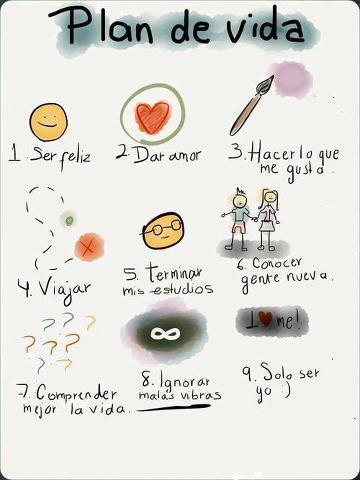 Plan de vida
1. Ser feliz
2. Dar amor
3. Hacer lo que
me gusta.
4. Viajar
5. terminar
mis estudios
6. Conocer
gente nueva.
???
???
??
I ♥ me!
7. Comprender
mejor la vida.
8. Ignorar
malas vibras
9. Solo ser
yo :)